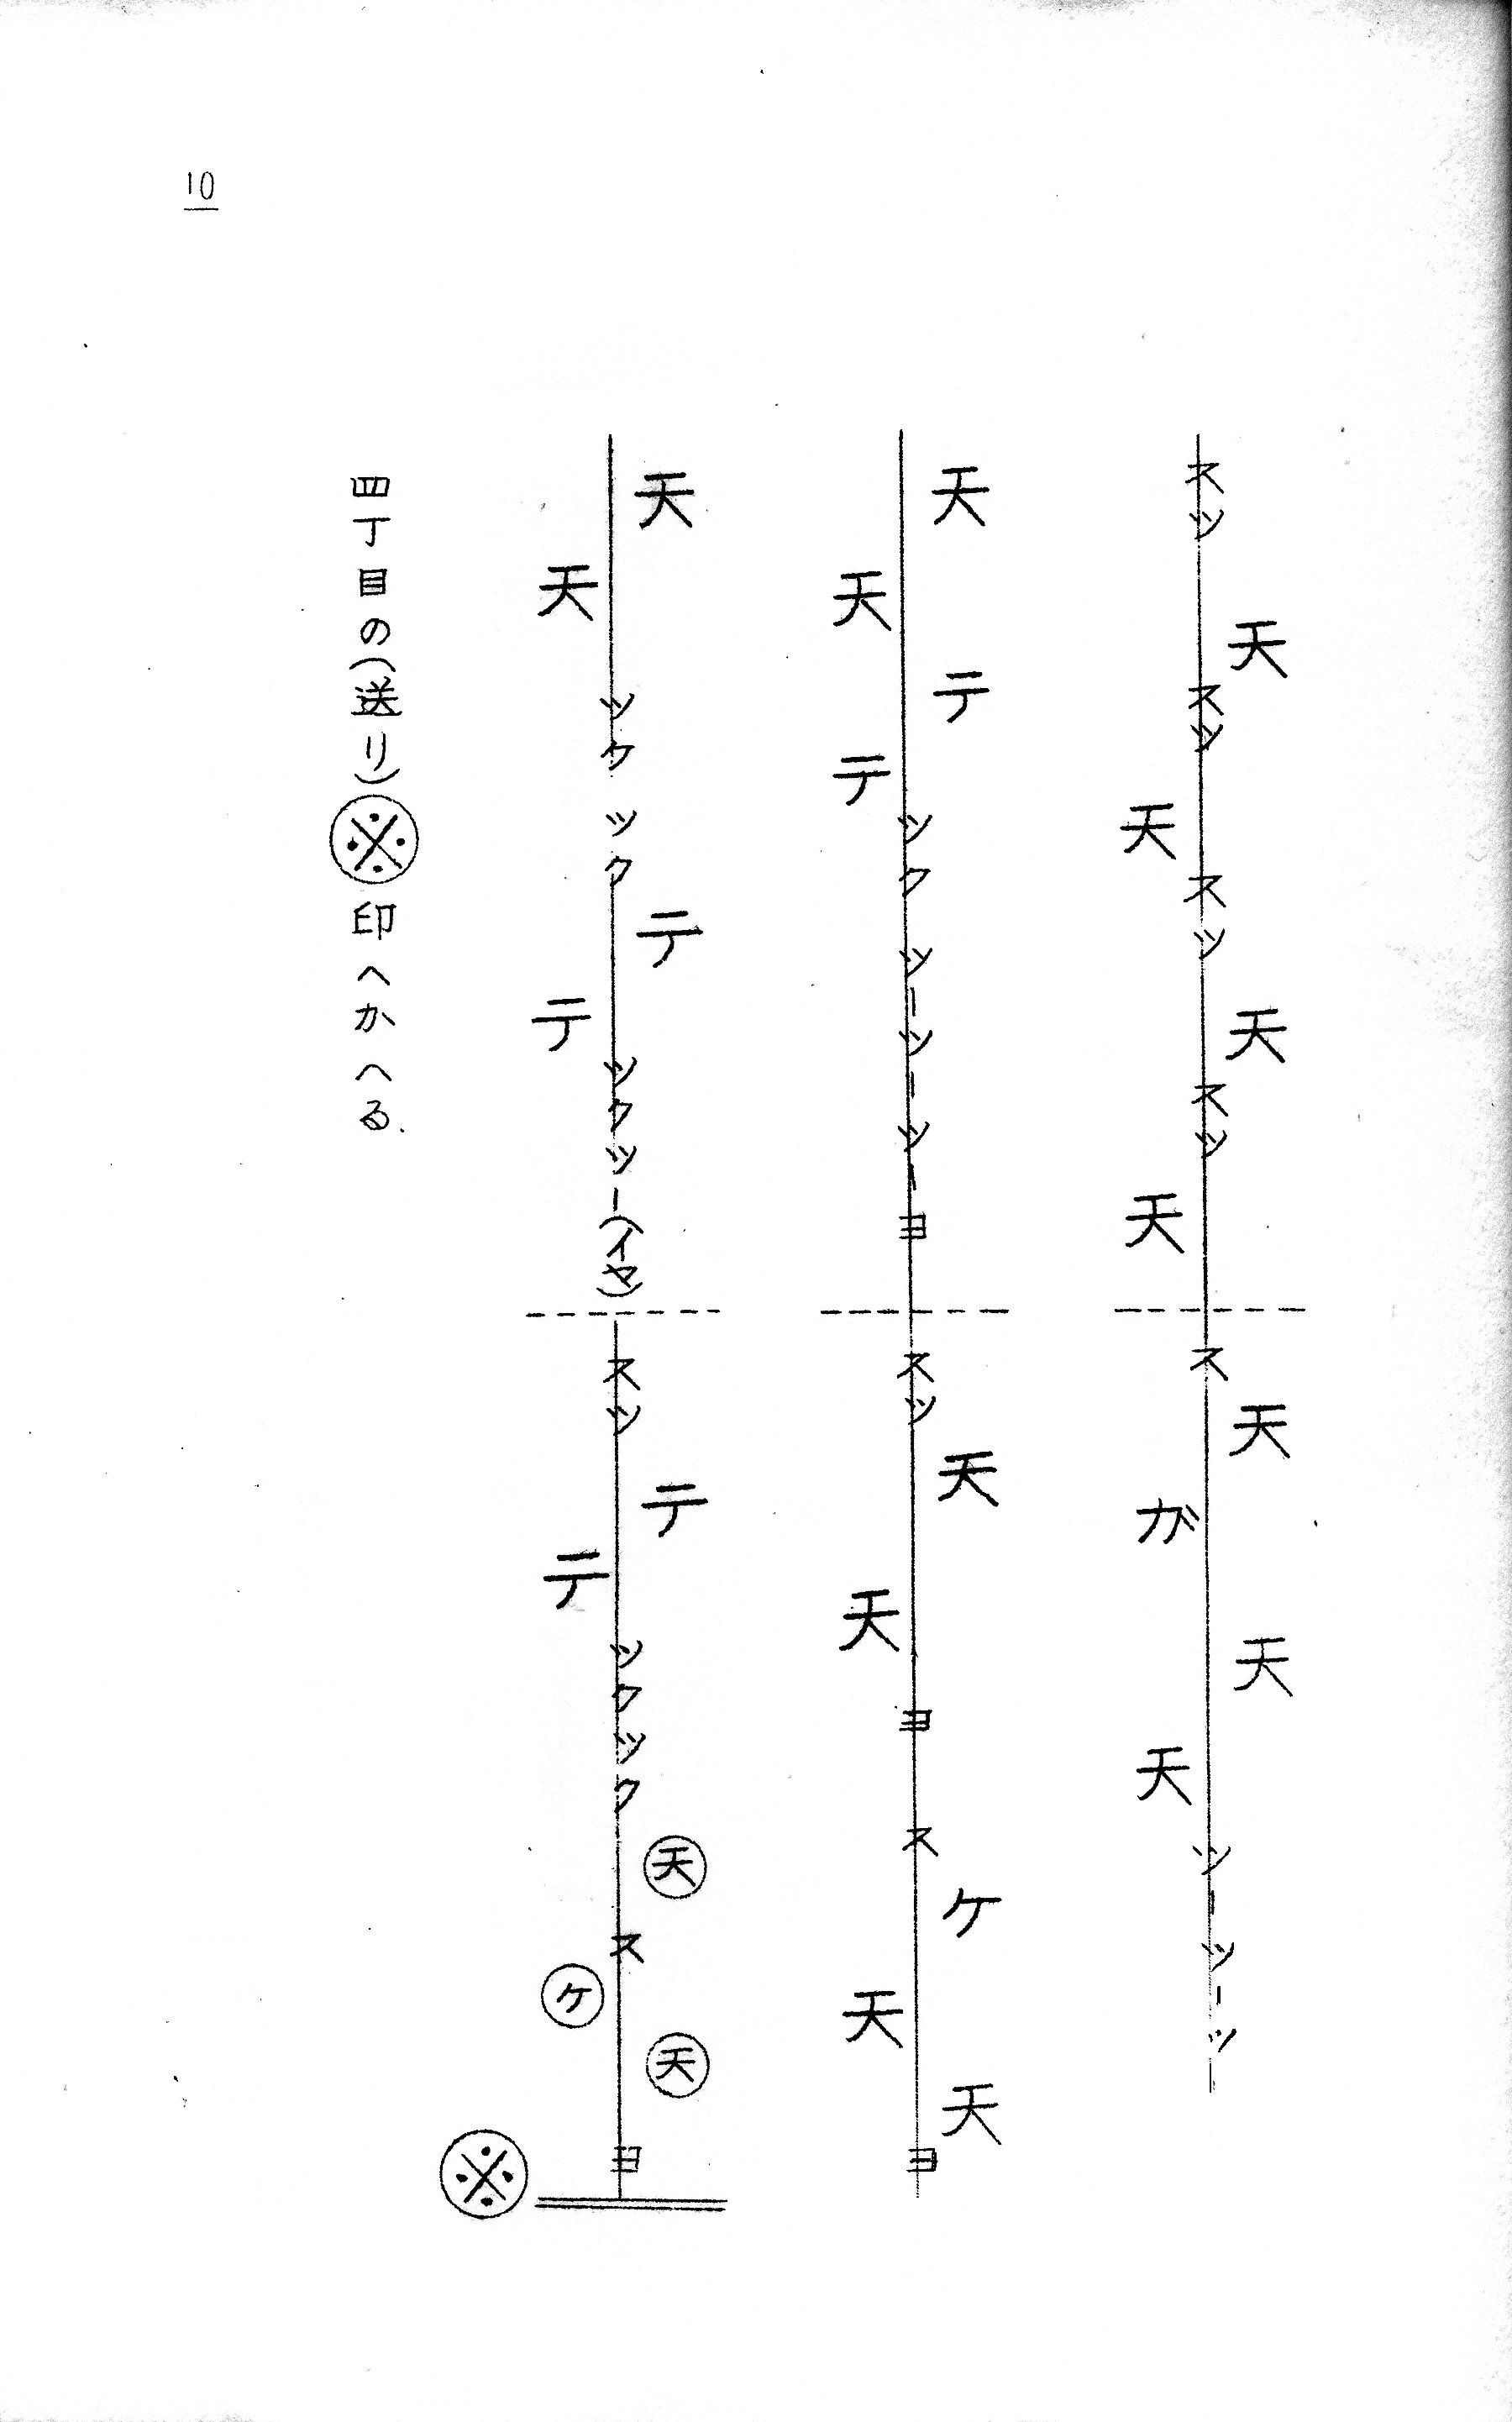 10
スツ天スツ天スツ天スツ天
ス天ガ天天ツーツーツー
天天テテツクツーツーツーヨ
スツ天天ヨスケ天天ヨ
天天ツクツクテテツクツー(イヤ)
スツテテツクツク天スケ天ヨ
※
四丁目の(送リ)※印へかへる.